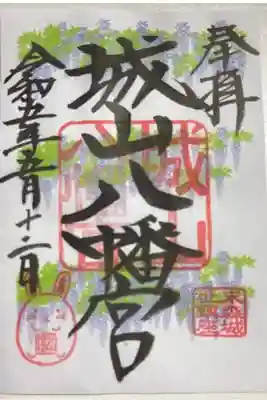 奉拝
城山八幡宮
令和五年五月十二日